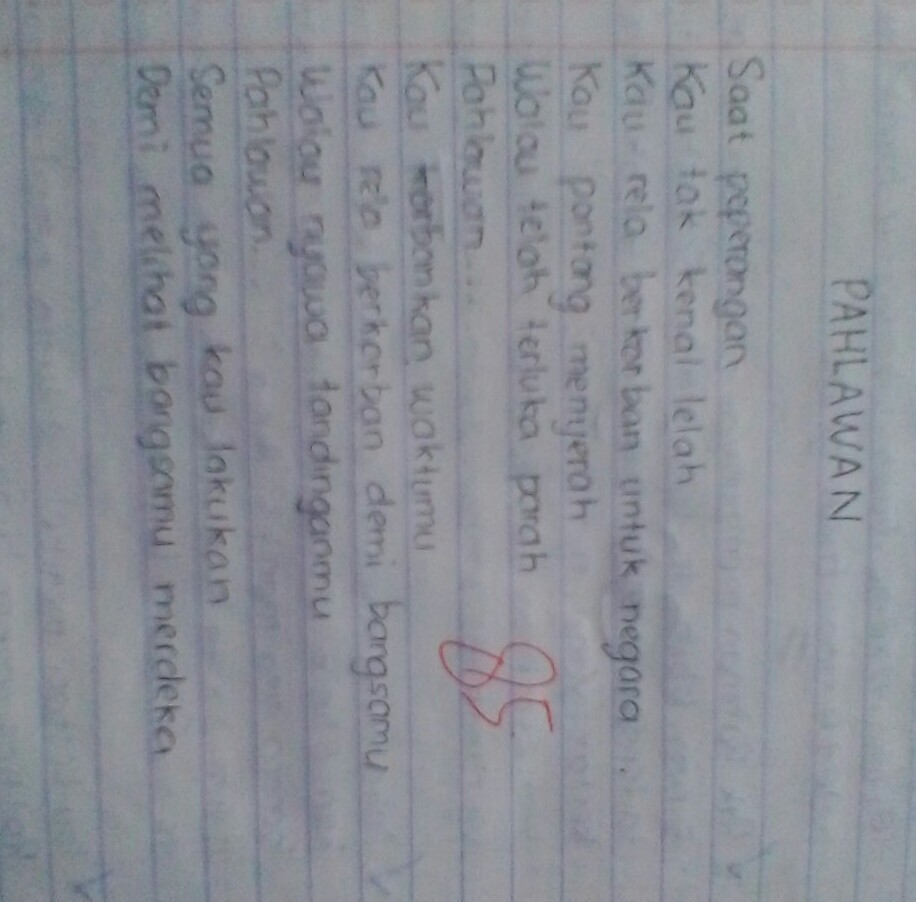 PAHLAWAN
Saat peperangan
Kau tak kenal lelah
Kau rela berkorban untuk negara.
Kau pantang menyerah
Walau telah terluka parah
Pahlawan...
Kau korbankan waktumu
Kau rela berkorban demi bangsamu
Walau nyawa tandinganmu
Pahlawan..
Semua yang kau lakukan
Demi melihat bangsamu merdeka
85